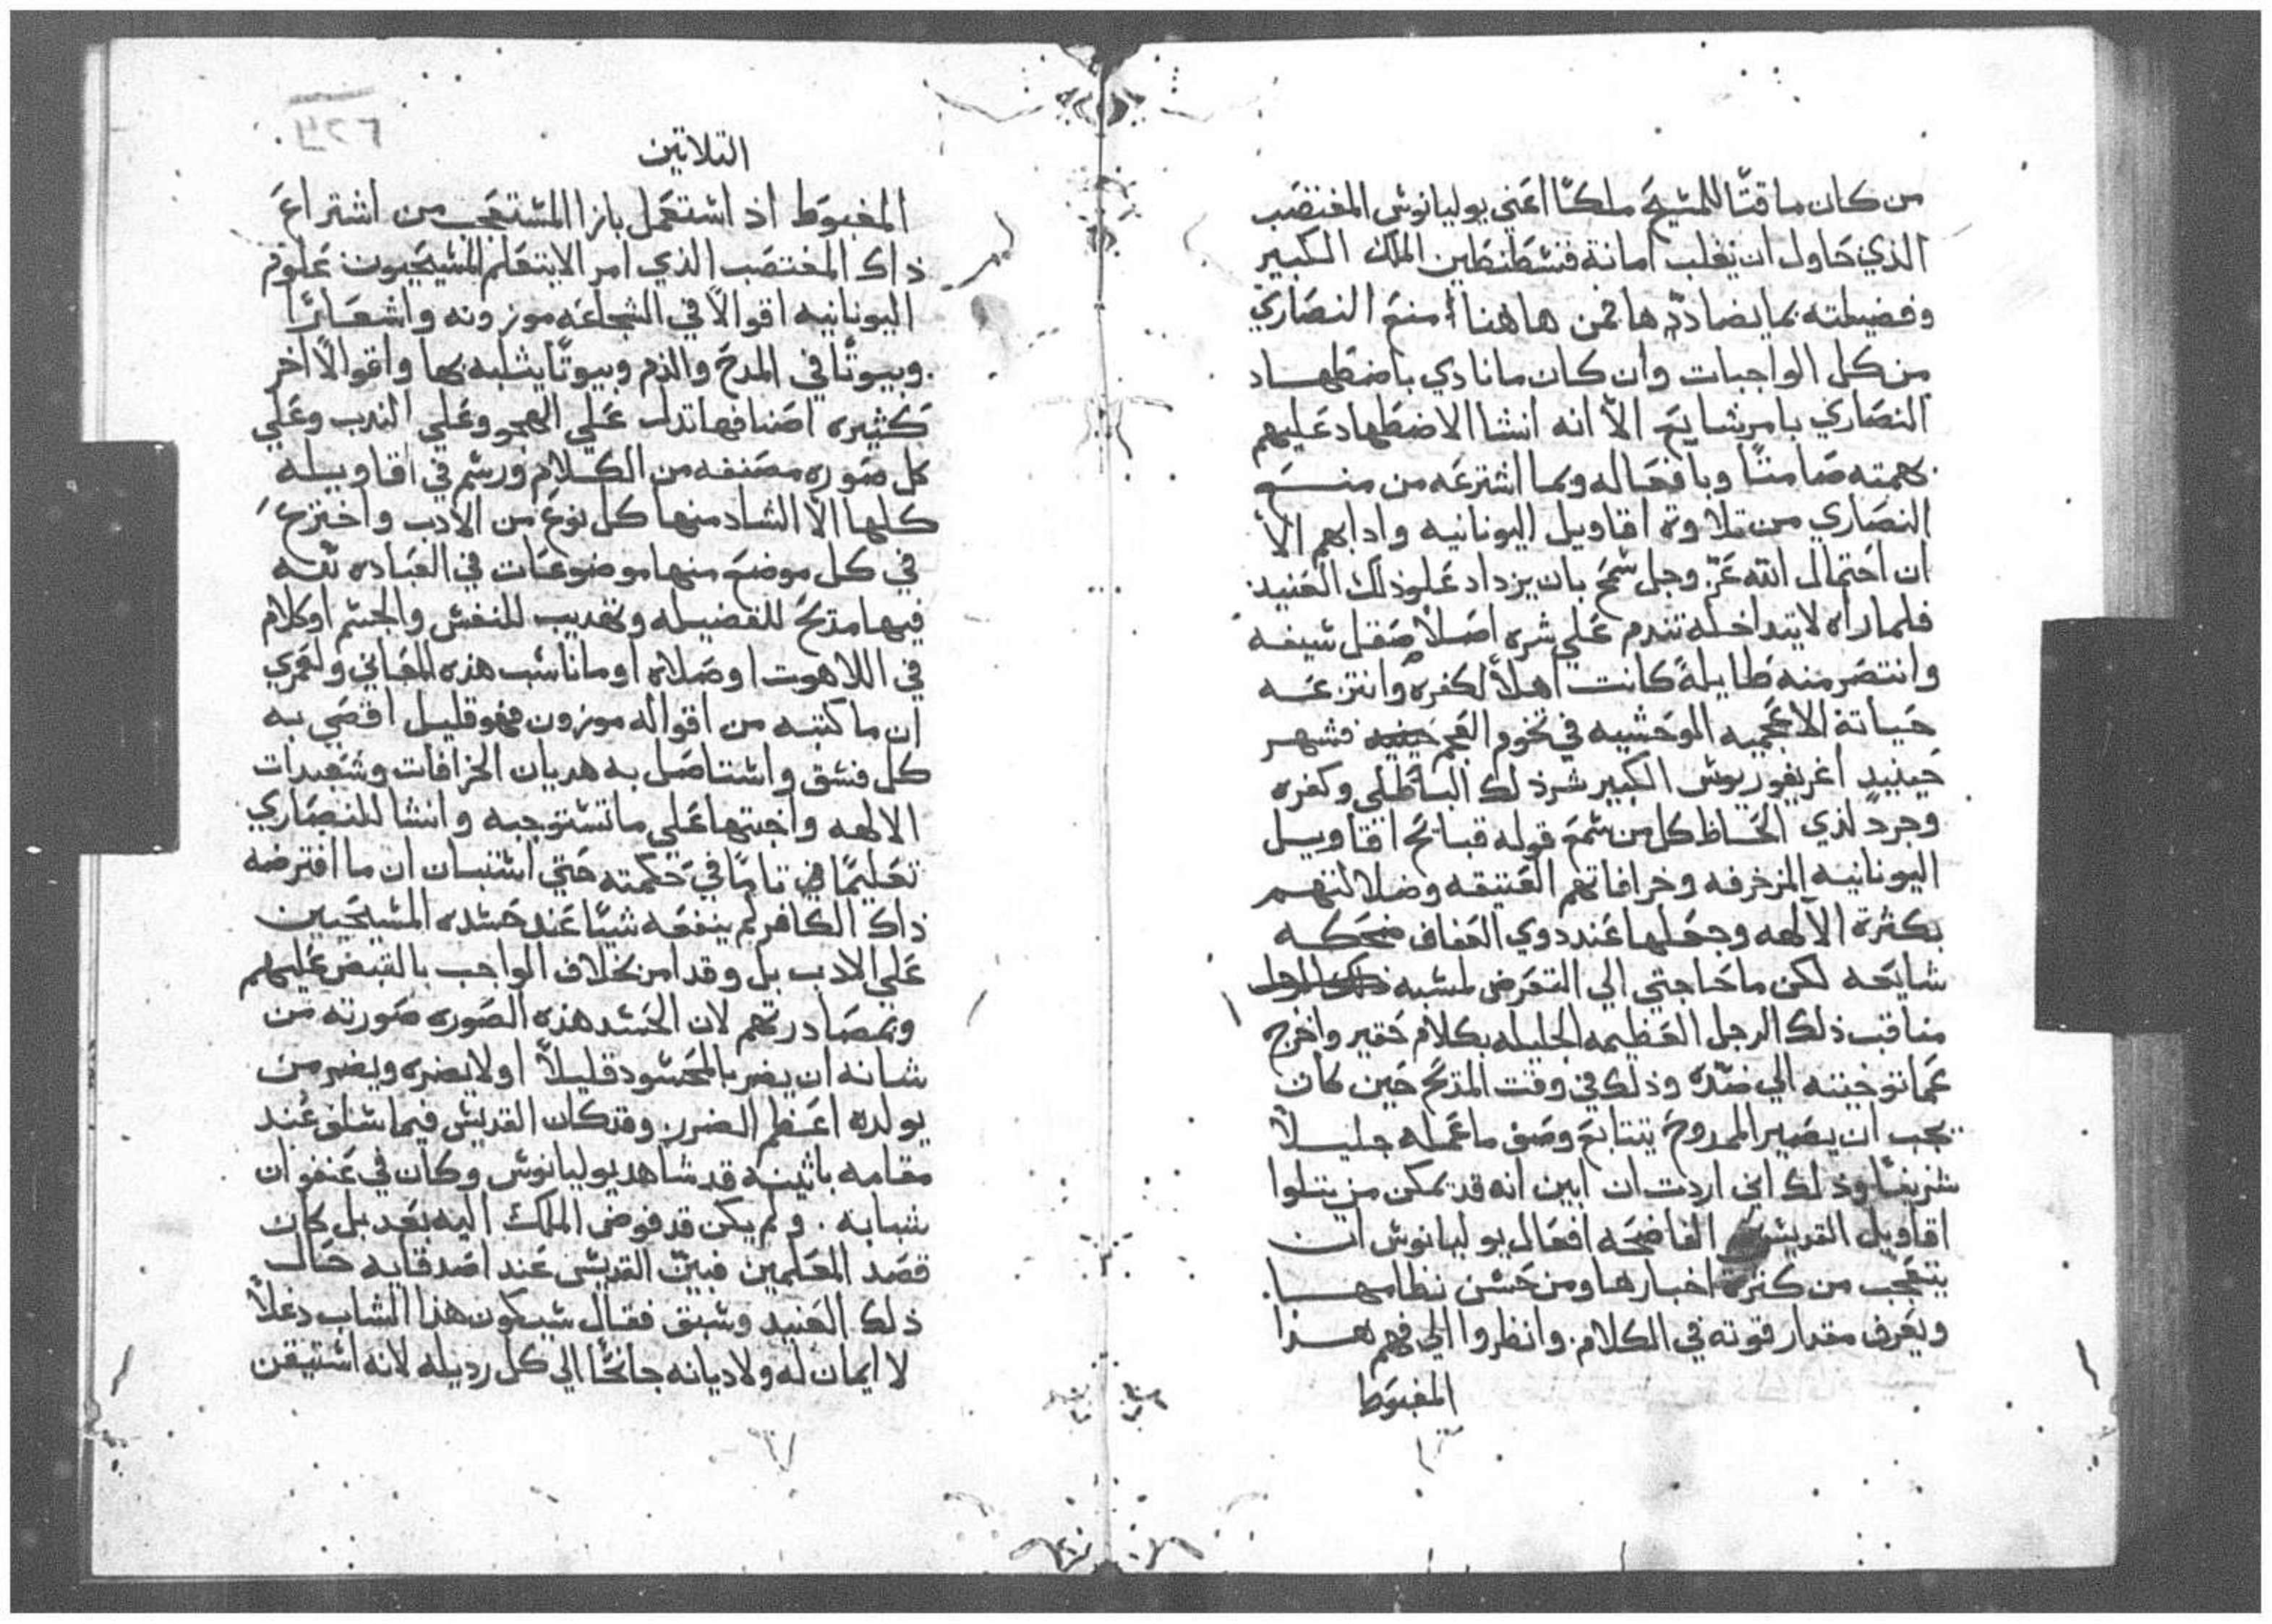 من كان ماقتًا للمسيح ملكًا اعني يوليانوس المغتصب
الذي حاول ان يغلب امانة قسطنطين الملك الكبير
وفضيلته بما يضاددها فمن هاهنا منع النصاري
من كل الواجبات وان كان ما نادي باضطهاد
النصاري بامر شايع الا انه انشا الاضطهاد عليهم
بهمته صامتًا وبافعاله وبما اشترعه من منع
النصاري من تلاوة اقاويل اليونانيه وادابهم الا
ان احتمال الله عز وجل سمح بان يزداد علو ذلك العنيد
فلما راه لا يتداخله تندم علي شره اصلاً صقل سيفه
وانتصر منه طايلةً كانت اهلاً لكفره وانتزعه
حياته الاعجميه الوحشيه في تخوم العجم فشهر
حينيدٍ اغريغوريوس الكبير شر ذلك الباطلي وكفره
وجرد لذي الحاظ كل من سمع قوله قبائح اقاويل
اليونانيه المزخرفه وخرافاتهم العتيقه وضلالتهم
بكثرة الالهه وجعلها عند ذوي العفاف ضحكه
شايعه لكن ما حاجتي الي التعرض لمشبه
مناقب ذلك الرجل العظيمه الجليله بكلام حقير واخرج
عما توخيته الي ضده وذلك في وقت المدح حين كان
يجب ان يصير الممدوح يتتابع وصف ما عمله جليلاً
شريفًا وذلك اني اردت ان ابين انه قد يمكن من يتلوا
اقاويل القديس الفاضحه افعال يوليانوس ان
يتعجب من كثرة اخبارها ومن حسن نظامها.
ويعرف مقدار قوته في الكلام. وانظروا الي فهم هذا
المغبوط
التلاتين
المغبوط اذ استعمل بازا المستعجب من اشتراع
ذاك المغتصب الذي امر الا يتعلم المسيحيون علوم
اليونانيه اقوالاً في الشجاعه موزونه واشعارًا
وبيوتًا في المدح والذم وبيوتًا يثلبه بها واقوالاً اخر
كثيره اصنافها تدل علي الهجو وعلي الندب وعلي
كل صوره مصنفه من الكلام ورسم في اقاويله
كلها الا الشاد منها كل نوع من الادب واخترع
في كل موضع منها موضوعات في العباده ثقه
فيها مديح للفضيله وتهديب للنفس والجسم او كلام
في اللاهوت او صلاه او ما ناسب هذه المعاني ولعمري
ان ما كتبه من اقواله موزون فهو قليل اقصي به
كل فسق واستاصل به هديان الخرافات وشعبدات
الالهه واجتثها علي ما تستوجبه وانشا للنصاري
تعليمًا تامًا في حكمته حتي استبان ان ما افترضه
ذاك الكافر لم ينفعه شيًا عند حسده المسيحيين
علي الادب بل وقد امر بخلاف الواجب بالقبض عليهم
وبمصادرتهم لان الحسد هذه الصوره صورته من
شانه ان يضر بالمحسود قليلاً او لا يضره ويضر من
يولده اعظم الضرر. وقد كان القديس فيما سلف عند
مقامه باثينه قد شاهد يوليانوس وكان في عنفوان
شبابه. ولم يكن قد فوض الملك اليه بعد بل كان
قصد المعلمين فبين القديس عند اصدقايه حال
ذلك العنيد وسبق فقال سيكون هذا الشاب دغلاً
لا ايمان له ولا ديانه جانحًا الي كل رديله لانه استيقن